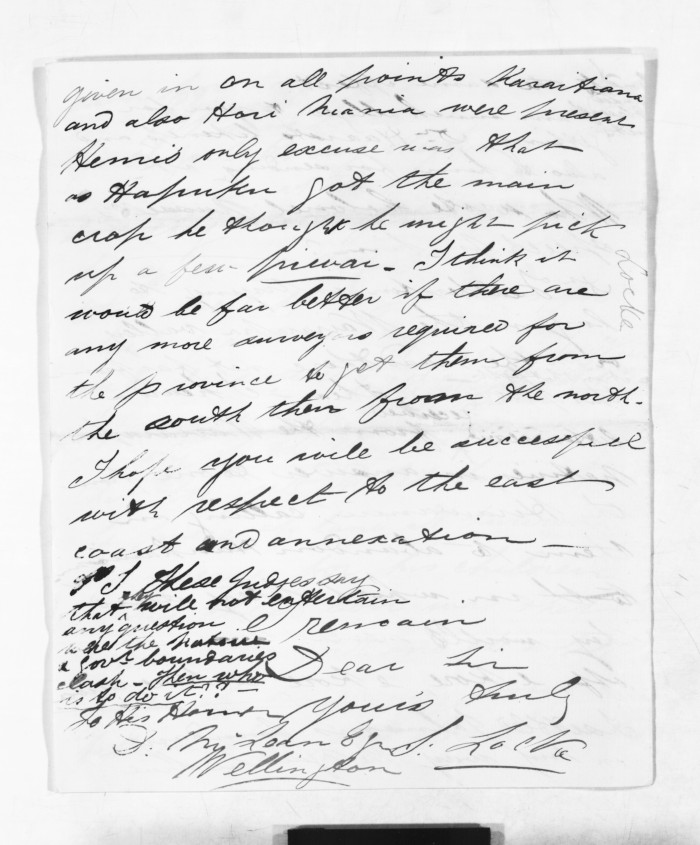 given in on all points Karaitiana
and also Hori Niania were present
Hemis only excuse was that
as Hapuku got the main
crop he thought he might pick
up a few piwai - I think it
would be far better if there are
any more surveyors required for
the province to get them from
the south then from the north -
I hope you will be successful
with respect to the east
coast and annexation -
I remain
Dear Sir
Yours truly
S. Locke
To His Honor
D. McLean Esqr
Wellington
P S These Judges say
that they will not entertain
any question
where the Native
& Govt. boundaries
clash - then who
is to do it??
Locke